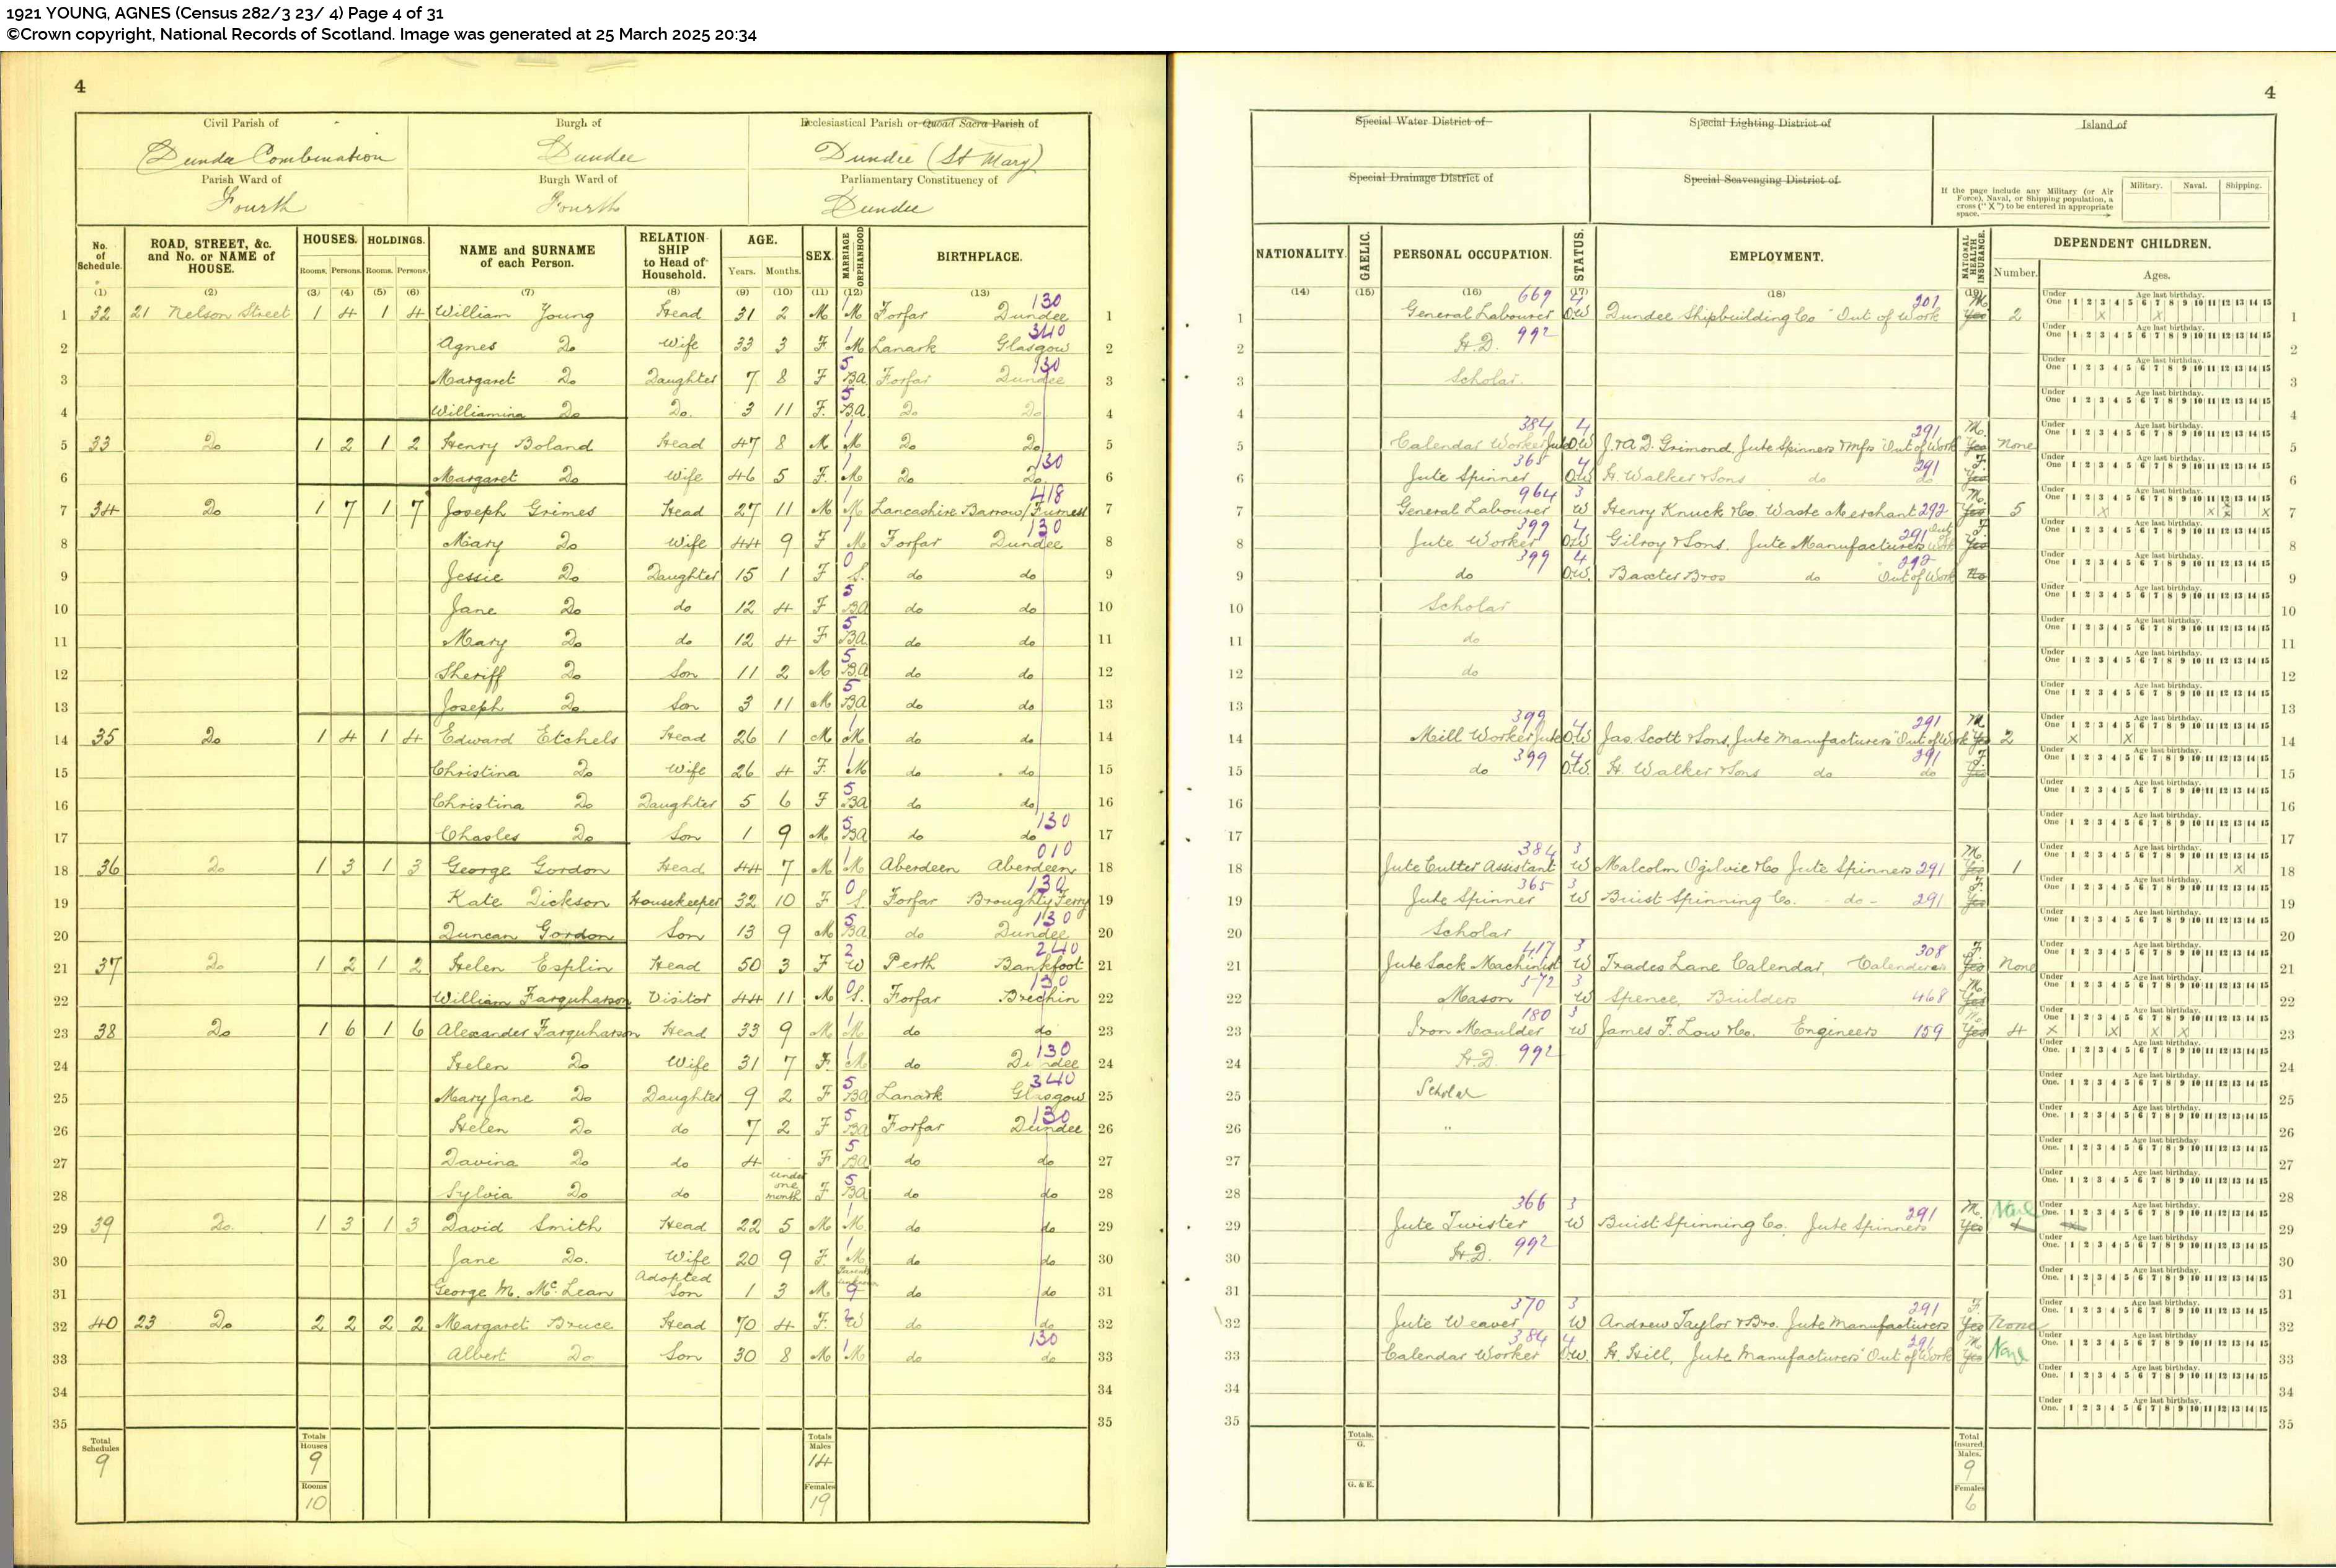 1921 YOUNG, AGNES (Census 282/3 23/ 4) Page 4 of 31
©Crown copyright, National Records of Scotland. Image was generated at 25 March 2025 20:34
4
Civil Parish of Burgh of Ecclesiastical Parish or Quoad Sacra Parish of
Dundee Combination Dundee Dundee (St Mary)
Parish Ward of Burgh Ward of Parliamentary Constituency of
Fourth Fourth Dundee
No. of Schedule. ROAD, STREET, &c. and No. or NAME of HOUSE. HOUSES. HOLDINGS. NAME and SURNAME of each Person. RELATION-SHIP to Head of Household. AGE. SEX. MARRIAGE ORPHANHOOD BIRTHPLACE.
Rooms. Persons. Rooms. Persons. Years. Months.
(1) (2) (3) (4) (5) (6) (7) (8) (9) (10) (11) (12) (13)
1 32 21 Nelson Street 1 4 1 4 William Young Head 31 2 M 1 M Forfar Dundee 130 1
2 Agnes Do Wife 33 3 F 1 M Lanark Glasgow 340 2
3 Margaret Do Daughter 7 8 F 5 BA Forfar Dundee 130 3
4 Williamina Do Do. 3 11 F. 5 BA Do Do 4
5 33 Do 1 2 1 2 Henry Boland Head 47 8 M 1 M Do Do 5
6 Margaret Do Wife 46 5 F. 1 M Do Do 130 6
7 34 Do 1 7 1 7 Joseph Grimes Head 27 11 M 1 M Lancashire Barrow/Furness 418 7
8 Mary Do Wife 44 9 F 1 M Forfar Dundee 130 8
9 Jessie Do Daughter 15 1 F 0 S. do do 9
10 Jane Do do 12 4 F 5 BA do do 10
11 Mary Do do 12 4 F 5 BA do do 11
12 Sheriff Do Son 11 2 M 5 BA do do 12
13 Joseph Do Son 3 11 M 5 BA do do 13
14 35 Do 1 4 1 4 Edward Etchels Head 26 1 M 1 M do do 14
15 Christina Do Wife 26 4 F. 1 M do do 15
16 Christina Do Daughter 5 6 F 5 BA do do 16
17 Charles Do Son 1 9 M 5 BA do do 130 17
18 36 Do 1 3 1 3 George Gordon Head 44 7 M 1 M Aberdeen Aberdeen 010 18
19 Kate Dickson Housekeeper 32 10 F 0 S. Forfar Broughty Ferry 130 19
20 Duncan Gordon Son 13 9 M 5 BA do Dundee 130 20
21 37 Do 1 2 1 2 Helen Esplin Head 50 3 F 2 W Perth Bankfoot 240 21
22 William Farquharson Visitor 44 11 M 0 S. Forfar Brechin 130 22
23 38 Do 1 6 1 6 Alexander Farquharson Head 33 9 M 1 M do do 23
24 Helen Do Wife 31 7 F. 1 M do Dundee 130 24
25 Mary Jane Do Daughter 9 2 F 5 BA Lanark Glasgow 340 25
26 Helen Do do 7 2 F 5 BA Forfar Dundee 130 26
27 Davina Do do 4 F 5 BA do do 27
28 Sylvia Do do under one month F 5 BA do do 28
29 39 Do. 1 3 1 3 David Smith Head 22 5 M 1 M. do do 29
30 Jane Do. Wife 20 9 F. 1 M do do 30
31 George M. McLean Adopted Son 1 3 M 9 do do 31
32 40 23 Do 2 2 2 2 Margaret Bruce Head 70 4 F. 2 W do do 32
33 Albert Do Son 30 8 M 1 M do do 130 33
34 34
35 35
Total Schedules 9 Totals Houses 9 Rooms 10 Totals Males 14 Females 19
4
Special Water District of Special Lighting District of Island of
Special Drainage District of Special Scavenging District of
If the page include any Military (or Air Force), Naval, or Shipping population, a cross ("X") to be entered in appropriate space. Military. Naval. Shipping.
NATIONALITY. GAELIC. PERSONAL OCCUPATION. STATUS. EMPLOYMENT. NATIONAL HEALTH INSURANCE. DEPENDENT CHILDREN.
Number. Ages.
(14) (15) (16) (17) (18) (19)
Under One 1 2 3 4 5 6 7 8 9 10 11 12 13 14 15 Age last birthday.
1 General Labourer 669 4 O.W Dundee Shipbuilding Co "Out of Work 201 M. Yes 2 X X 1
2 H.D. 992 2
3 Scholar. 3
4 4
5 Calendar Worker Jute 384 4 O.W J. & A. D. Grimond, Jute Spinners & Mfrs "Out of Work 291 M. Yes None 5
6 Jute Spinner 365 4 O.W H. Walker & Sons do do 291 F. Yes 6
7 General Labourer 964 3 W Henry Knuck & Co. Waste Merchant 292 M. Yes 5 X X X X X 7
8 Jute Worker 399 4 O.W Gilroy & Sons. Jute Manufacturers Out of Work 291 F Yes 8
9 do 399 4 O.W. Baxter Bros do "Out of Work 292 No 9
10 Scholar 10
11 do 11
12 do 12
13 13
14 Mill Worker Jute 399 4 O.W Jas. Scott & Sons, Jute Manufacturers "Out of Work 291 M. Yes 2 X X 14
15 do 399 4 O.W. H. Walker & Sons do do 291 F. Yes 15
16 16
17 17
18 Jute Cutter Assistant 384 3 W Malcolm Ogilvie & Co Jute Spinners 291 M. Yes 1 X 18
19 Jute Spinner 365 3 W Buist Spinning Co. - do - 291 F. Yes 19
20 Scholar 20
21 Jute Sack Machinist 417 3 W Trades Lane Calendar, Calenderers 308 F. Yes None 21
22 Mason 572 3 W Spence, Builders 468 M. Yes 22
23 Iron Moulder 180 3 W James F. Low & Co. Engineers 159 M. Yes 4 X X X X 23
24 H.D. 992 24
25 Scholar 25
26 " 26
27 27
28 28
29 Jute Twister 366 3 W Buist Spinning Co, Jute Spinners 291 M. Yes None 1 X 29
30 H.D. 992 30
31 31
32 Jute Weaver 370 3 W Andrew Taylor & Bro. Jute Manufacturers 291 F. Yes None 32
33 Calendar Worker 384 4 O.W. H. Hill, Jute Manufacturers "Out of Work 291 M. Yes None 33
34 34
35 35
Totals. G. G. & E. Total Insured. Males. 9 Females 6